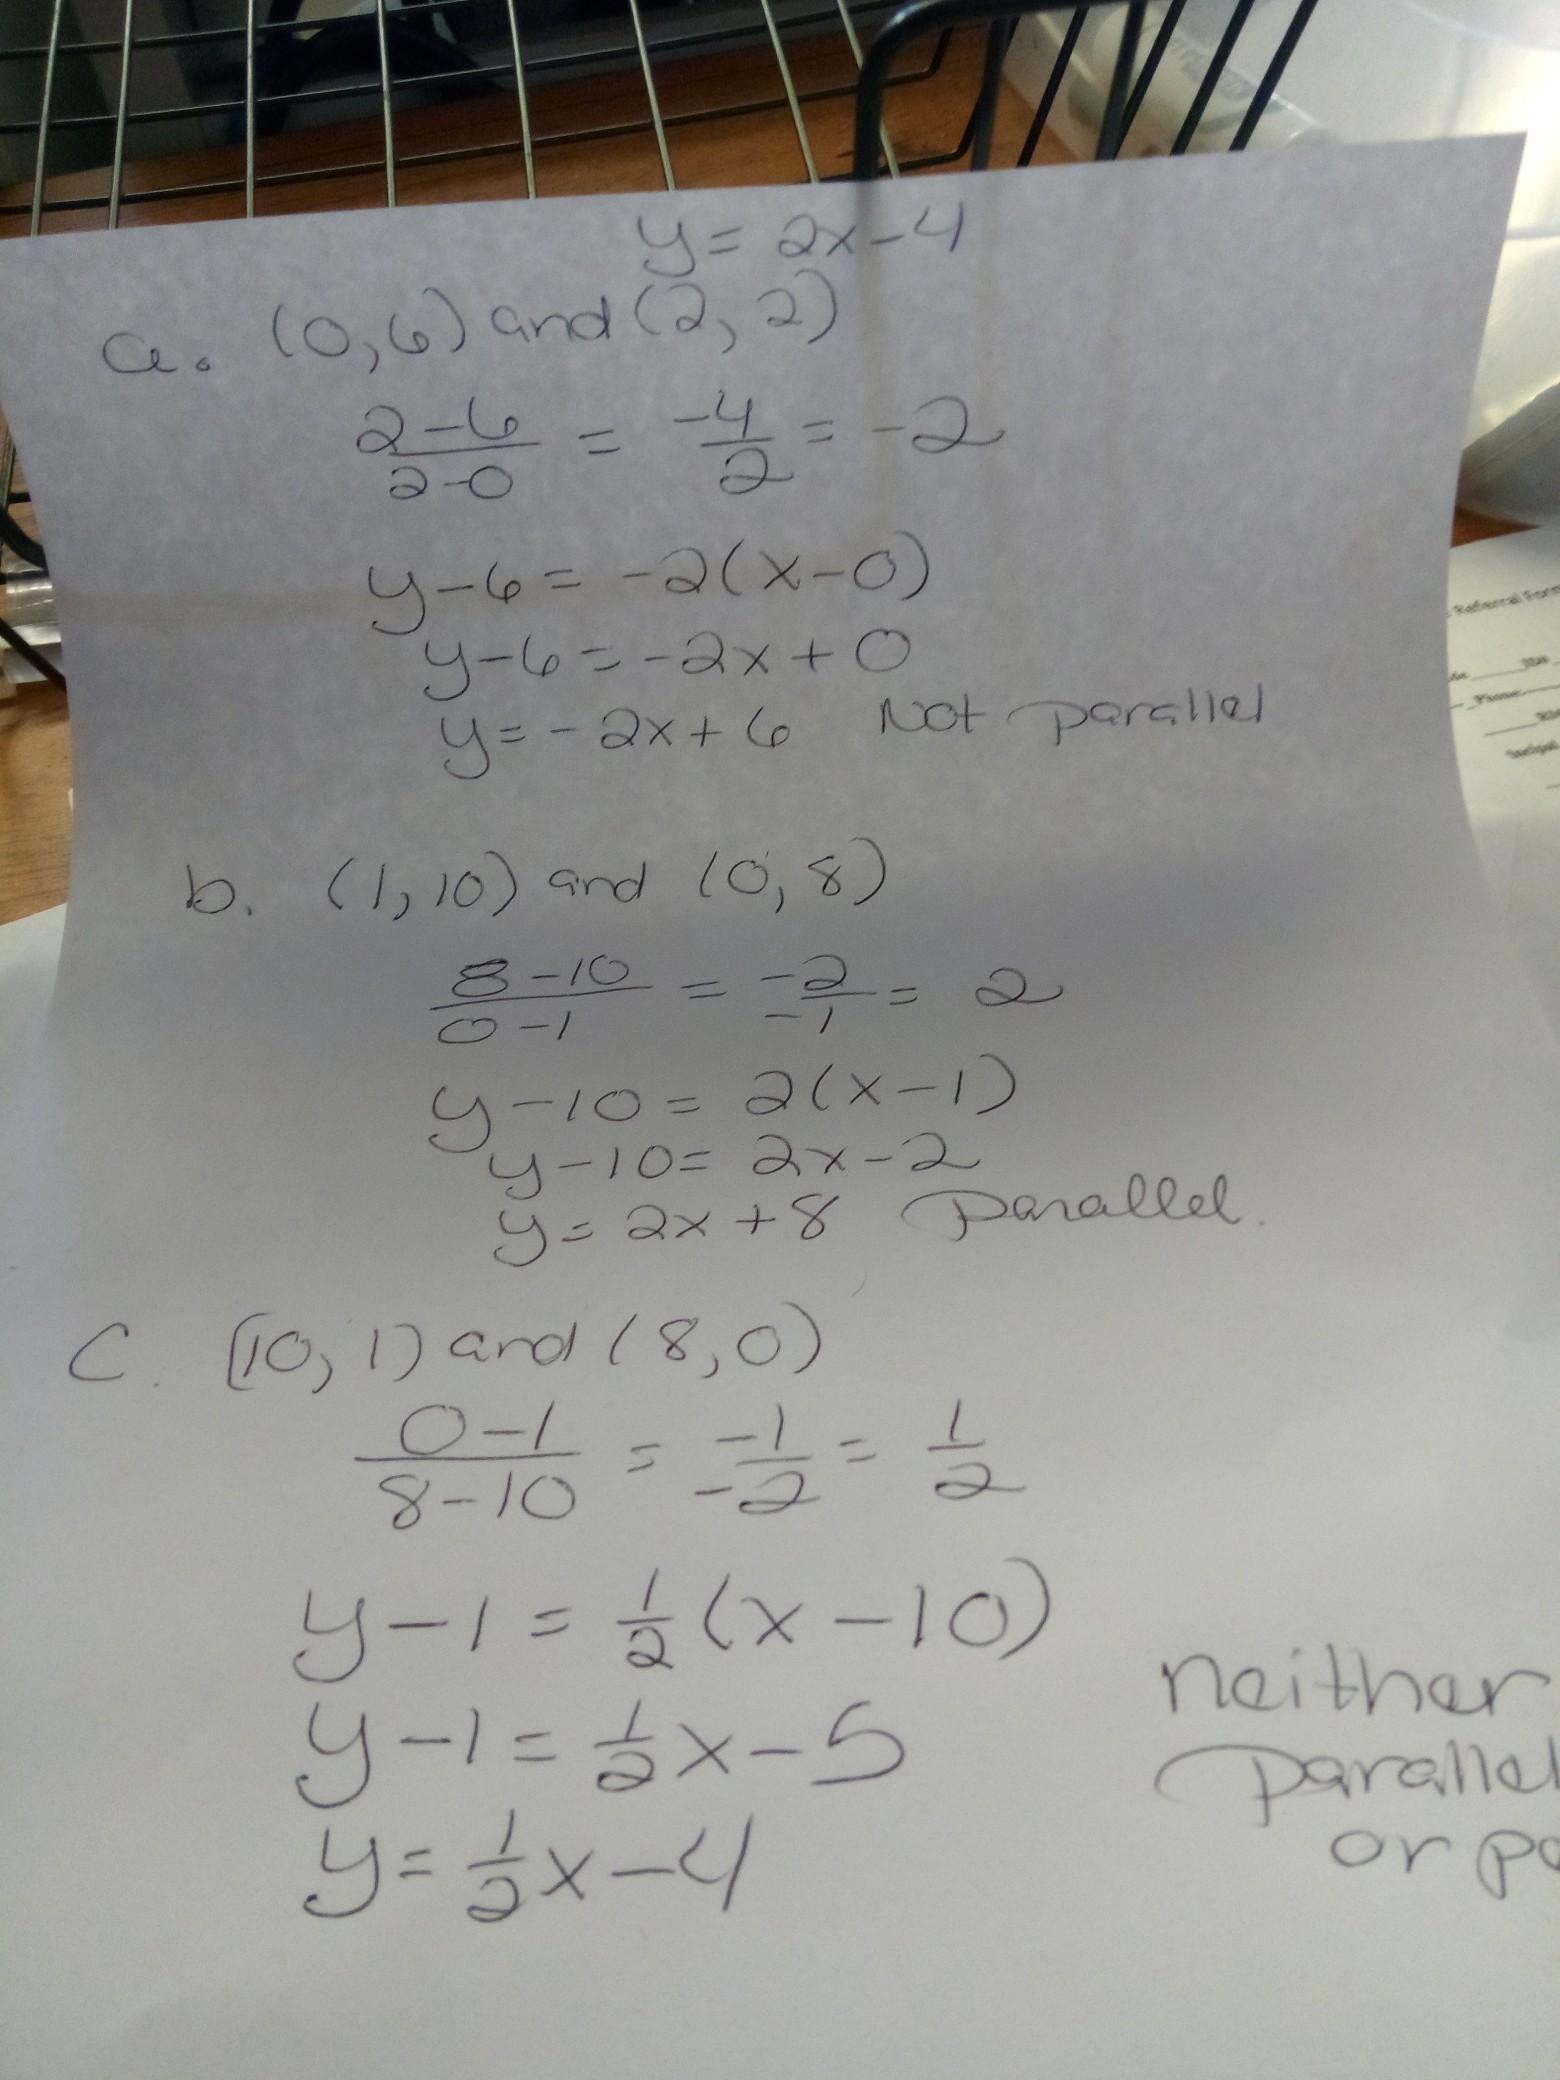 y = 2x-4
a. (0,6) and (2, 2)
2-6/2-0 = -4/2 = -2
y-6 = -2(x-0)
y-6 = -2x+0
y = -2x+6 Not parallel
b. (1,10) and (0,8)
8-10/0-1 = -2/-1 = 2
y-10 = 2(x-1)
y-10 = 2x-2
y = 2x+8 parallel.
C. (10,1) and (8,0)
0-1/8-10 = -1/-2 = 1/2
y-1 = 1/2(x-10)
y-1 = 1/2x-5
y = 1/2x-4
neither
parallel
or
Referral Form
Phone: